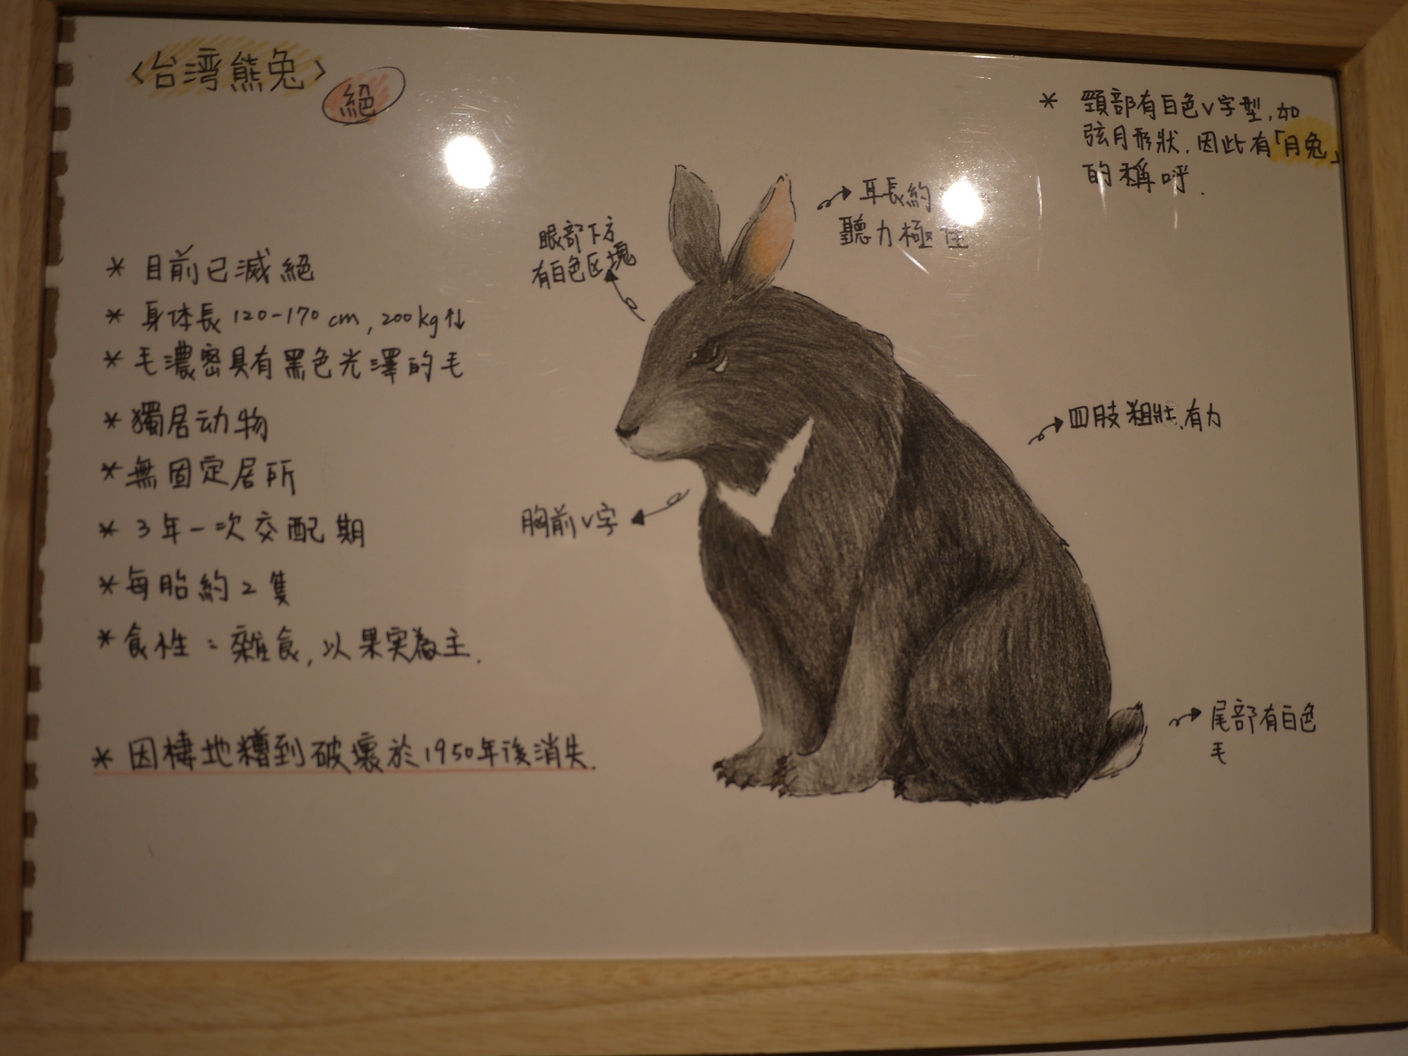 <台湾熊兔>
絕
* 目前已滅絕
* 身体長120-170cm, 200kg↑↓
* 毛濃密具有黑色光澤的毛
* 獨居动物
* 無固定居所
* 3年一次交配期
* 每胎約2隻
* 食性:雜食, 以果实為主.
* 因棲地糟到破壞於1950年後消失.
眼部下方
有白色区塊
胸前V字
耳長約
聽力極佳
* 頸部有白色V字型, 如
弦月形狀, 因此有「月兔」
的稱呼.
四肢粗壯、有力
尾部有白色
毛